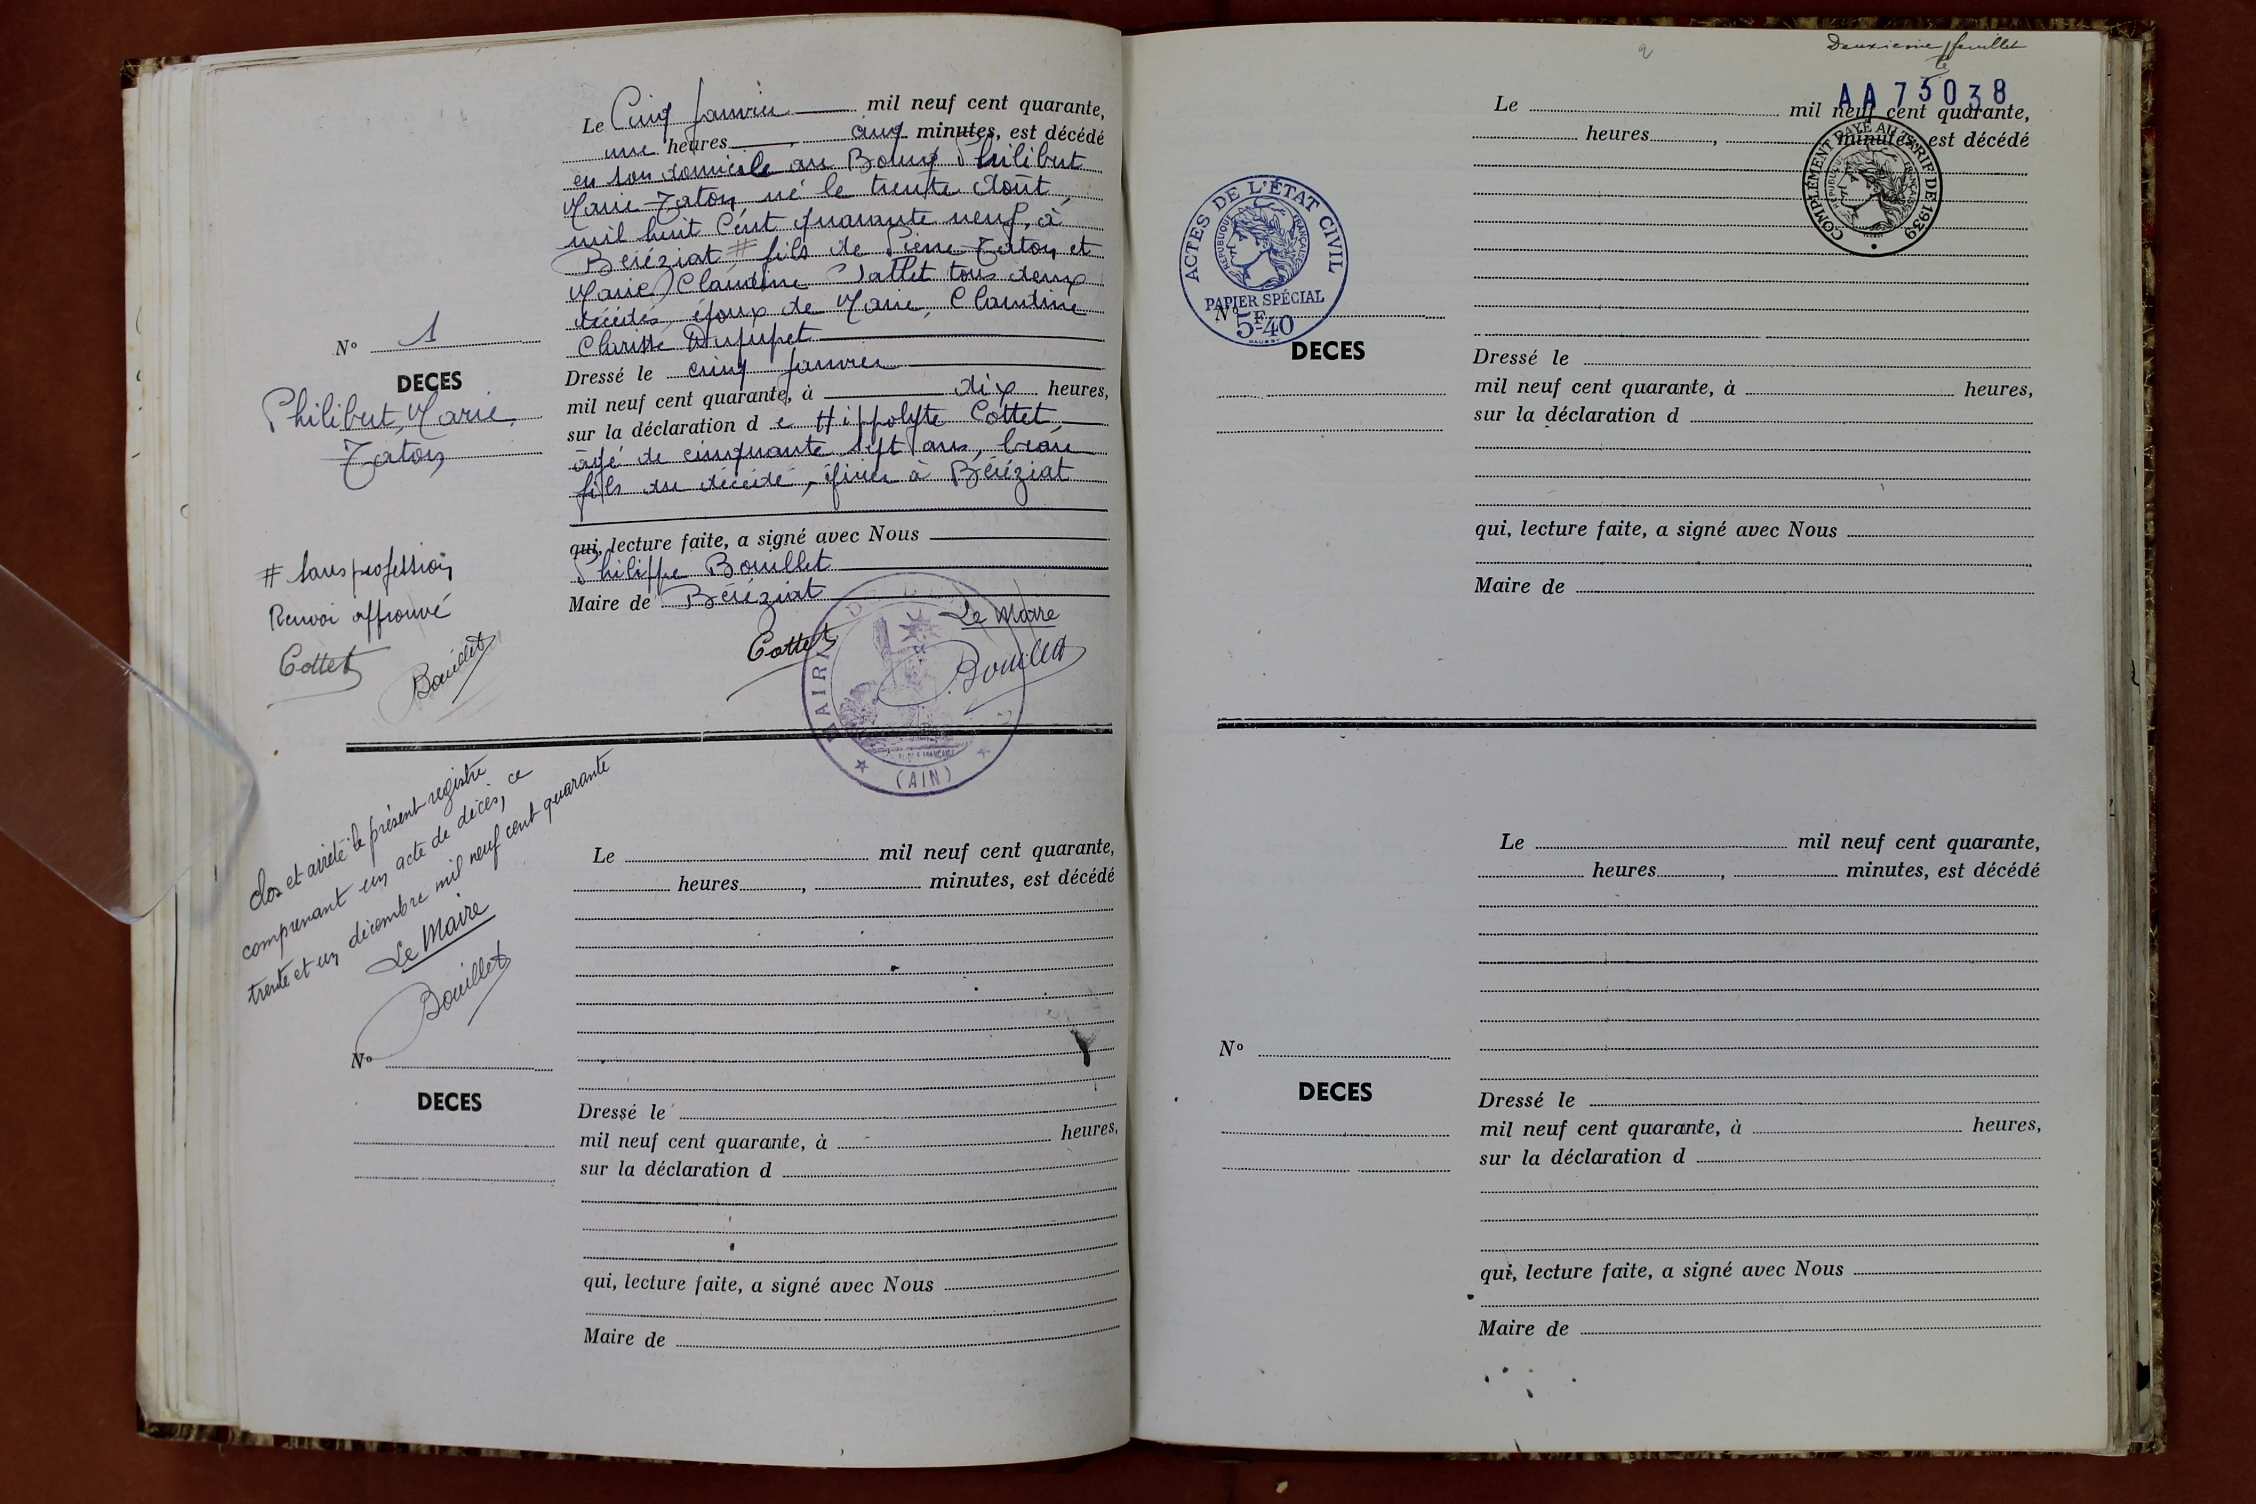 Le Cinq Janvier mil neuf cent quarante,
une heures, cinq minutes, est décédé
en son domicile au Bourg Philibert
Marie Taton né le trente Août
mil huit Cent quarante neuf, à
Béréziat # fils de Pierre Taton et
Marie Claudine Jallet tous deux
décédés, époux de Marie, Claudine
Clarisse Dupupet
Dressé le cinq Janvier
mil neuf cent quarante, à dix heures,
sur la déclaration d e Hippolyte Cottet
âgé de cinquante sept ans, beau
fils du décédé, à Béréziat
qui, lecture faite, a signé avec Nous
Philippe Bouillet
Maire de Béréziat
Le Maire
Cottet
Bouillet
MAIRIE DE
(AIN)
No 1
DECES
Philibert, Marie,
Taton
# sans profession
Renvoi approuvé
Cottet
Bouillet
clos et arrêté le présent registre
comprenant un acte de décès, ce
trente et un décembre mil neuf cent quarante
Le Maire
Bouillet
No
DECES
Le mil neuf cent quarante,
heures, minutes, est décédé
Dressé le
mil neuf cent quarante, à heures,
sur la déclaration d
qui, lecture faite, a signé avec Nous
Maire de
2
Deuxième feuillet
AA 73038
COMPLÉMENT PAYÉ AU TARIF DE 1939
RÉPUBLIQUE FRANÇAISE
Le mil neuf cent quarante,
heures, minutes, est décédé
ACTES DE L'ÉTAT CIVIL
RÉPUBLIQUE FRANÇAISE
PAPIER SPÉCIAL
5F40
No
DECES
Dressé le
mil neuf cent quarante, à heures,
sur la déclaration d
qui, lecture faite, a signé avec Nous
Maire de
Le mil neuf cent quarante,
heures, minutes, est décédé
No
DECES
Dressé le
mil neuf cent quarante, à heures,
sur la déclaration d
qui, lecture faite, a signé avec Nous
Maire de